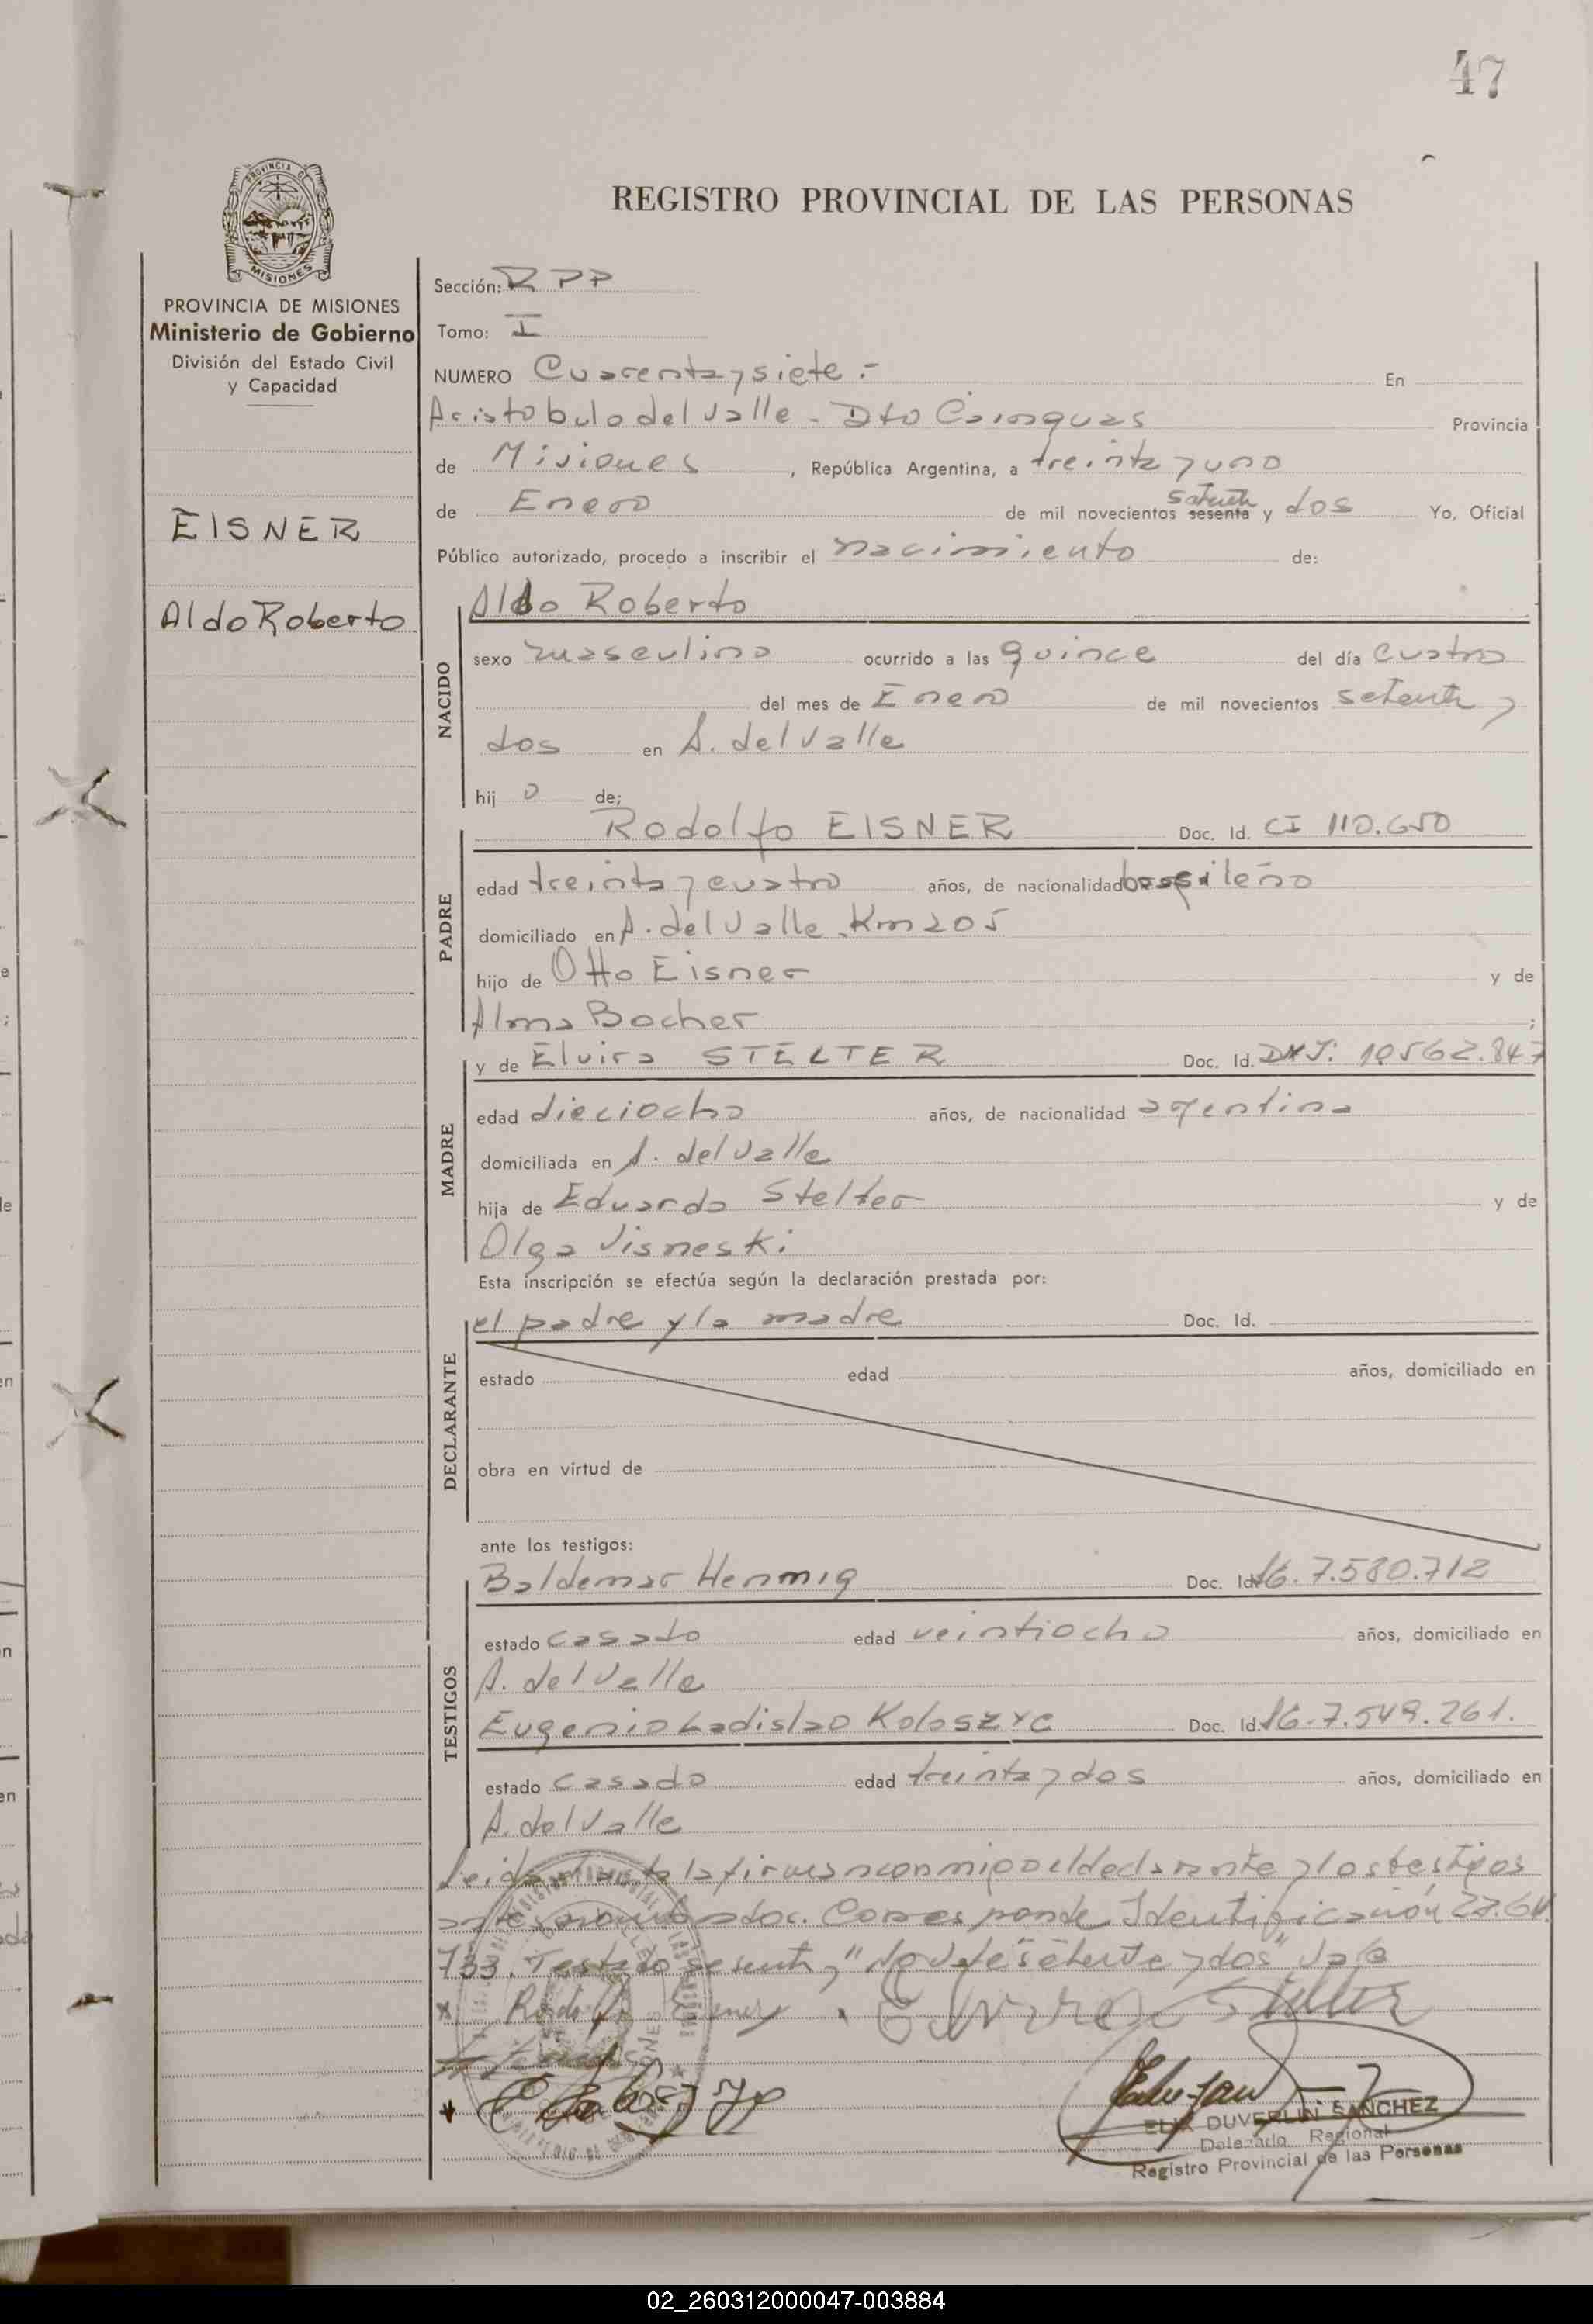 47
REGISTRO PROVINCIAL DE LAS PERSONAS
PROVINCIA DE MISIONES
Ministerio de Gobierno
División del Estado Civil
y Capacidad
EISNER
Aldo Roberto
Sección: RPP
Tomo: I
NUMERO Cuarenta y siete.- En
Aristobulo del Valle - Dto Cainguas Provincia
de Misiones, República Argentina, a treinta y uno
de Enero de mil novecientos sesenta setenta y dos Yo, Oficial
Público autorizado, procedo a inscribir el nacimiento de:
NACIDO
Aldo Roberto
sexo masculino ocurrido a las quince del día cuatro
del mes de Enero de mil novecientos setenta y
dos en A. del Valle
hijo de;
PADRE
Rodolfo EISNER Doc. Id. CI 110.650
edad treinta y cuatro años, de nacionalidad brasileño
domiciliado en A. del Valle Km 205
hijo de Otto Eisner y de
Alma Bocher ;
MADRE
y de Elvira STELTER Doc. Id. 10562.847
edad dieciocho años, de nacionalidad agentina
domiciliada en A. del Valle
hija de Eduardo Stelter y de
Olga Visneski
Esta inscripción se efectúa según la declaración prestada por:
DECLARANTE
el padre y la madre Doc. Id.
estado edad años, domiciliado en
obra en virtud de
ante los testigos:
TESTIGOS
Baldemar Henmig Doc. Id. 7.580.712
estado casado edad veintiocho años, domiciliado en
A. del Valle
Eugenio Ladislao Koloszyc Doc. Id. 7.549.261.
estado casado edad treinta y dos años, domiciliado en
A. del Valle
Leida el acta la firman conmigo el declarante y los testigos
Corresponde Identificación
733. Testado sesenta y "setenta y dos" Vale
Elvira Stelter
ELIA DUVERLIN SANCHEZ
Delegado Regional
Registro Provincial de las Personas
02_260312000047-003884